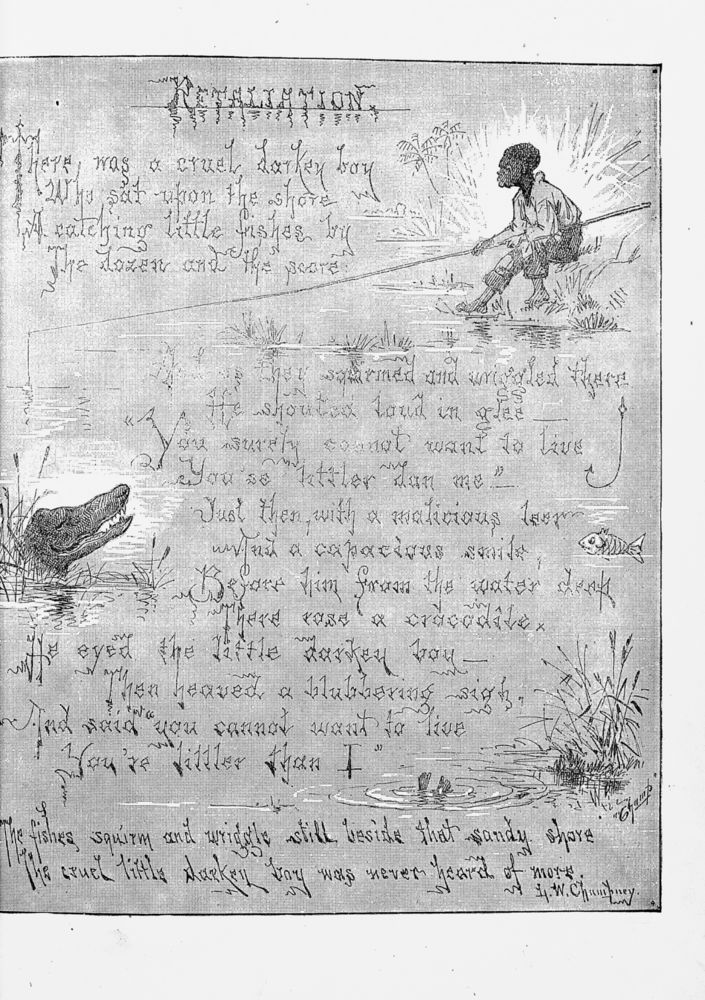 RETALIATION.
There was a cruel darkey boy
Who sat upon the shore
A catching little fishes by
The dozen and the score.
And as they squirmed and wriggled there
He shouted loud in glee—
"You surely cannot want to live
You'se littler dan me."—
Just then, with a malicious leer
And a capacious smile,
Before him from the water deep
There rose a crocodile.
He eyed the little darkey boy—
Then heaved a blubbering sigh,
And said "you cannot want to live
You're littler than I"
"Champ"
The fishes squirm and wriggle still beside that sandy shore
The cruel little darkey boy was never heard of more.
W. Champney.